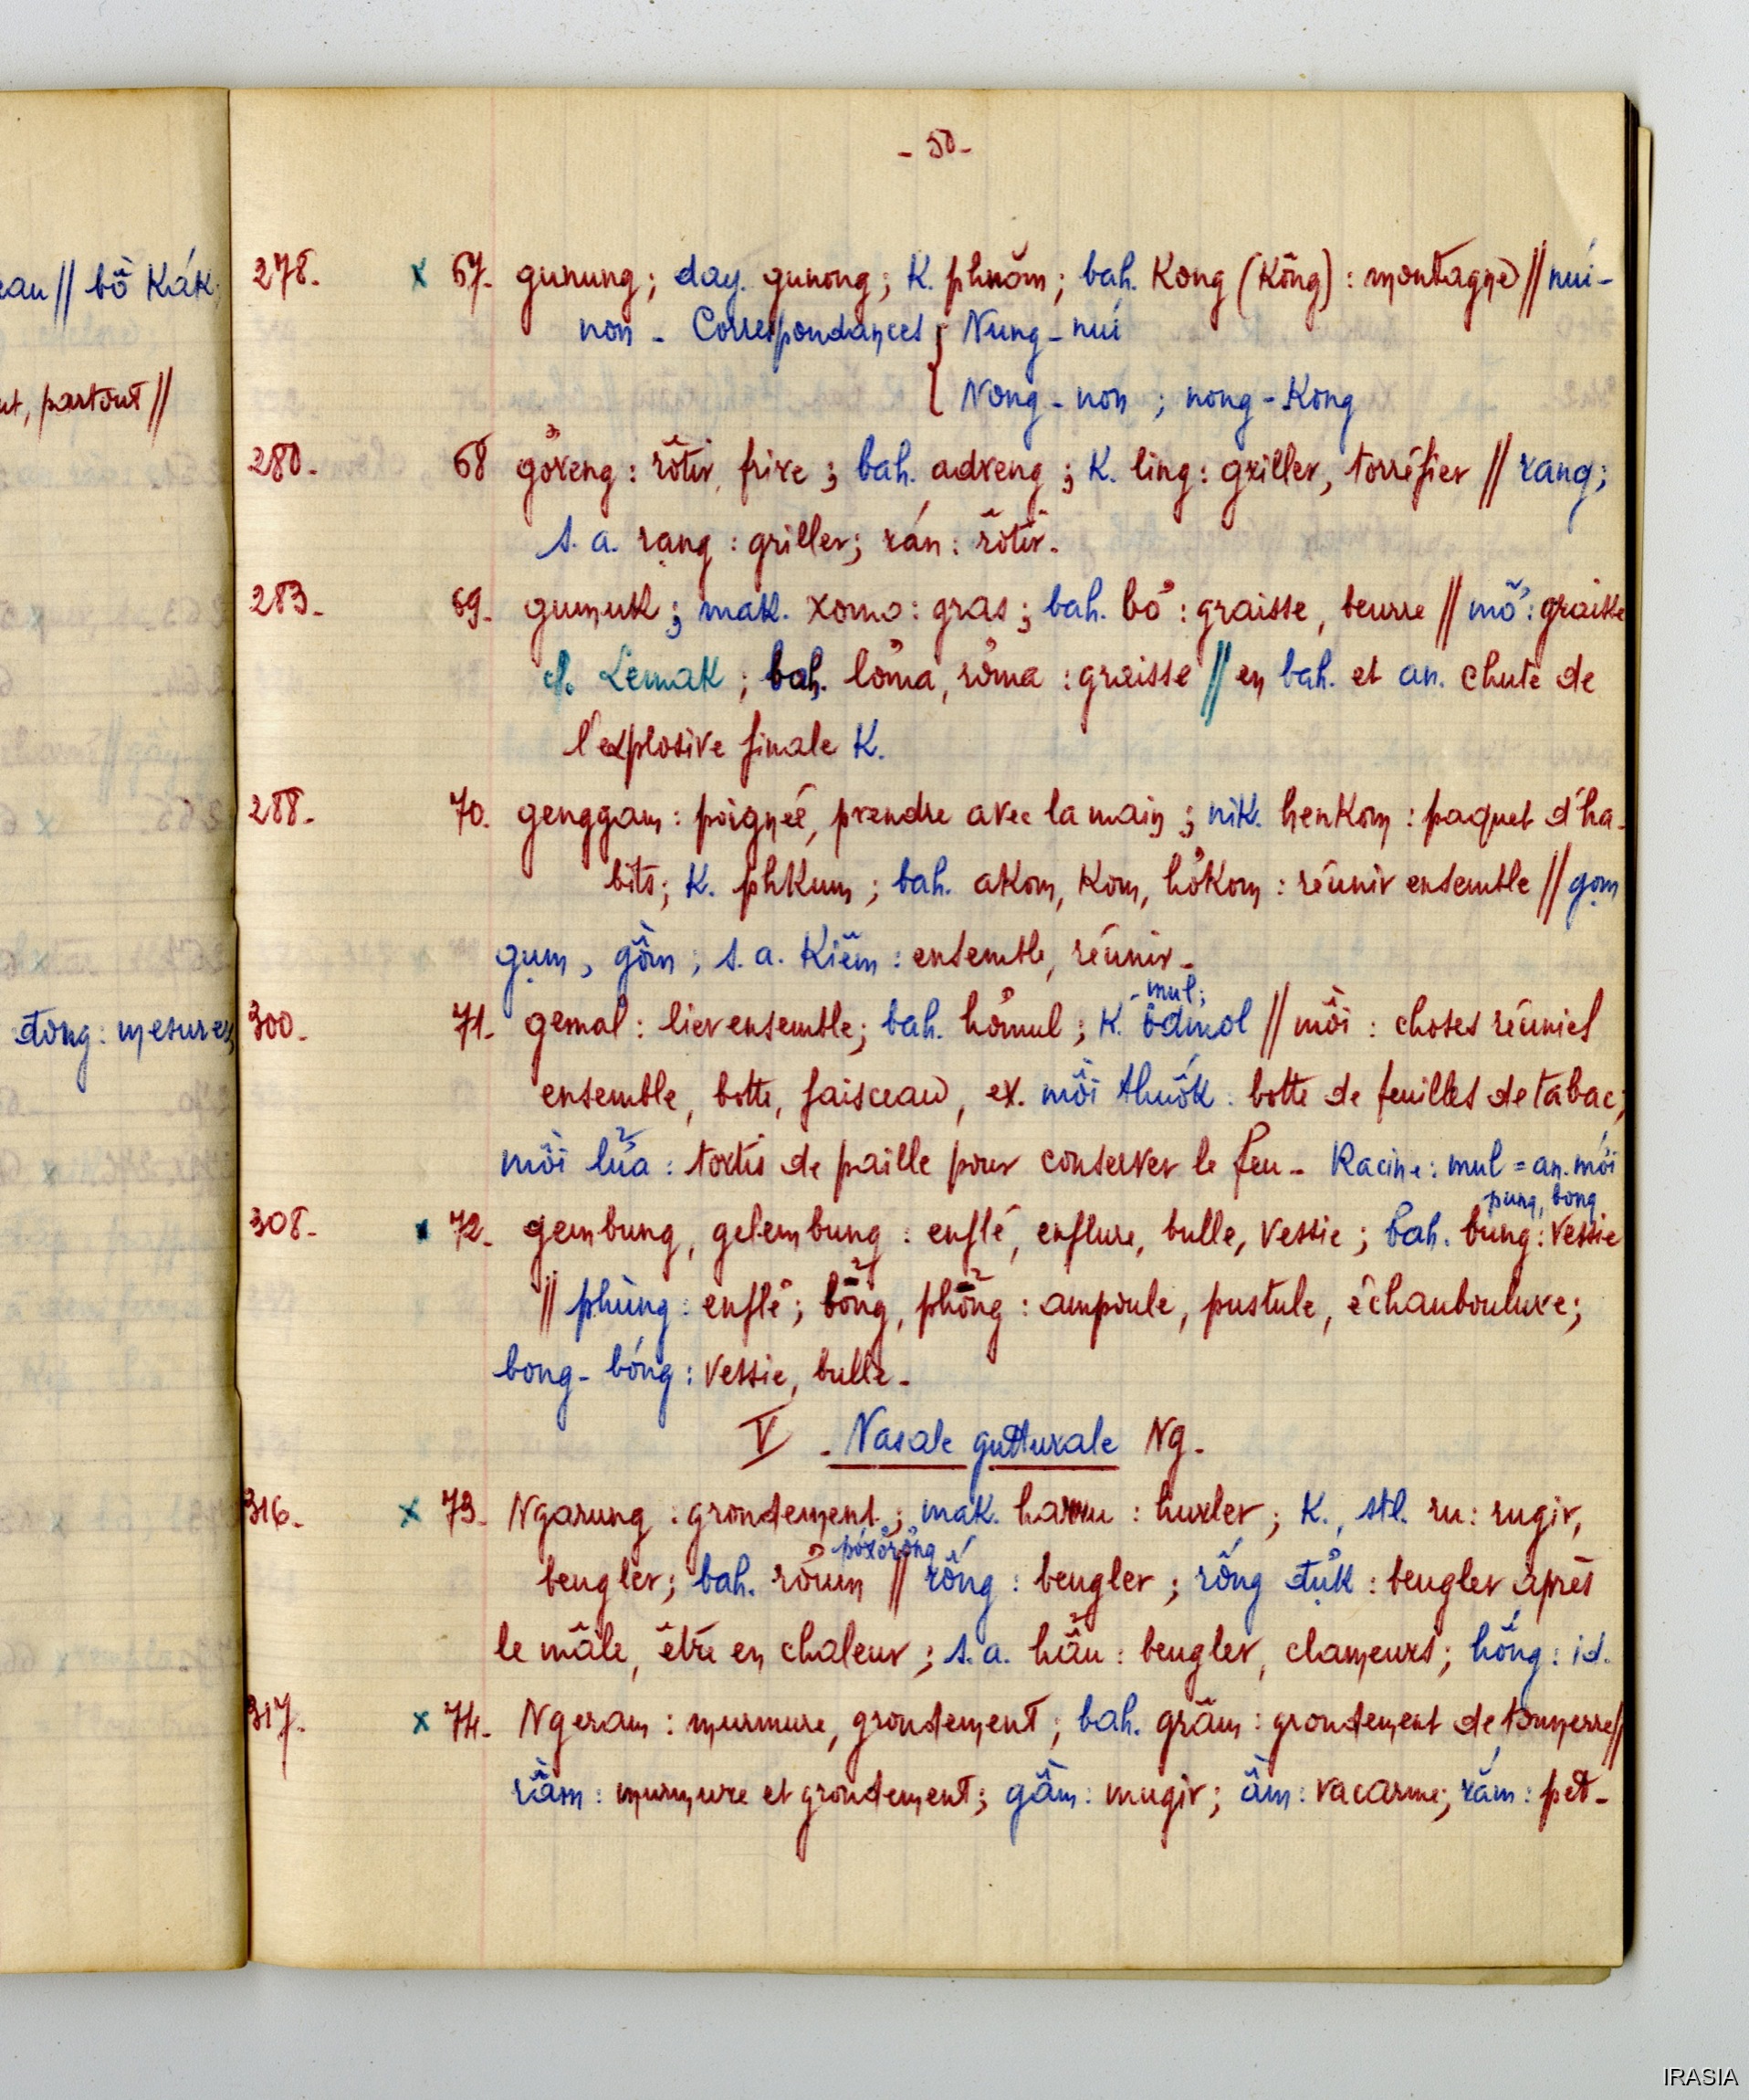 - 50 -
eau // bồ Kák;
278. x 67. gunung; day. gunong; K. phnŏm; bah. Kong (Kông) : montagne // núi-
non - Correspondances { Nung - núi
Nong - non ; nong - Kong
ut, partout //
280. 68 gơreng : rôtir, frire ; bah. adreng ; K. ling : griller, torréfier // rang;
s. a. rạng : griller; rán : rôtir.
283. 69. gumuk ; mak. romo : gras ; bah. bơ : graisse, beurre // mỡ : graisse
cf. Lemak ; bah. lơma, rơma : graisse // en bah. et an. chute de
l'explosive finale K.
288. 70. genggam : poignée, prendre avec la main ; nik. henkom : paquet d'ha-
bits; K. phkum ; bah. akom, kom, hơkom : réunir ensemble // gom
gụm, gồm ; s. a. Kiêm : ensemble, réunir.
- mul;
đong : mesures, 300. 71. gemal : lier ensemble; bah. hơmul ; K. ŏdmol // mồi : choses réunies
ensemble, botte, faisceau, ex. mồi thuốk : botte de feuilles de tabac;
mồi lửa : tortis de paille pour conserver le feu - Racine : mul = an. mối
pung, bong
308. x 72. gembung, gelembung : enflé, enflure, bulle, vessie ; bah. bung : vessie
// phùng : enflé ; bổng, phổng : ampoule, pustule, échauboulure;
bong - bóng : vessie, bulle -
V - Nasale gutturale Ng.
316. x 73. Ngarung : grondement ; mak. harru : hurler ; K., stl. ru : rugir,
pơrơŏng
beugler; bah. rơum // rống : beugler ; rống đựk : beugler après
le mâle, être en chaleur ; s. a. hẩu : beugler, clameurs; hống : id.
317. x 74. Ngeram : murmure, grondement ; bah. grăm : grondement de tonnerre //
rầm : murmure et grondement; gầm : mugir; ầm : vacarme; rắm : pet -
IRASIA